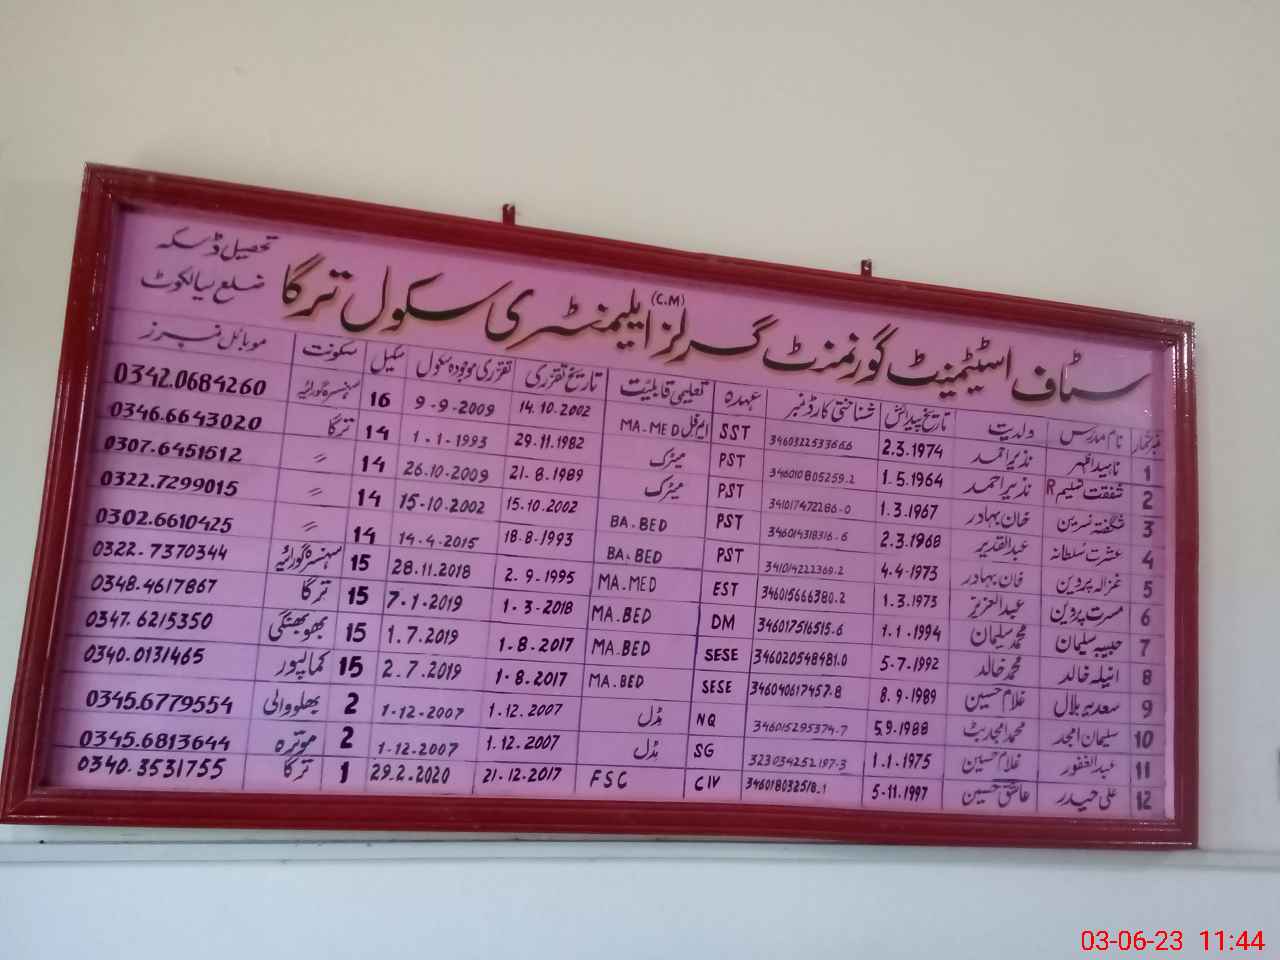 سٹاف اسٹیٹمینٹ گورنمنٹ گرلز ایلیمنٹری سکول ترگا
(C.M)
تحصیل ڈسکہ
ضلع سیالکوٹ
نمبر شمار نام مدرس ولدیت تاریخ پیدائش شناختی کارڈ نمبر عہدہ تعلیمی قابلیت تاریخ تقرری تقرری موجودہ سکول سکیل سکونت موبائل نمبرز
1 ناہید اظہر نذیر احمد 2.3.1974 SST ایم فل MA.MED 14.10.2002 9-9-2009 16 0342.0684260
2 شفقت شمیم R نذیر احمد 1.5.1964 346010805259.2 PST میٹرک 29.11.1982 1-1-1993 14 ترگا 0346.6643020
3 شگفتہ نسرین خان بہادر 1.3.1967 341017472286-0 PST میٹرک 21-8-1989 26.10-2009 14 〃 0307-6451612
4 عشرت سلطانہ عبدالقدیر 2.3.1968 346014318316.6 PST BA.BED 15.10.2002 15-10-2002 14 〃 0322.7299015
5 غزالہ پروین خان بہادر 4.4.1973 341014222369.2 PST BA.BED 18.8.1993 14.4.2015 14 〃 0302.6610425
6 مسرت پروین عبدالعزیز 1.3.1973 346015666380.2 EST MA.MED 2.9.1995 28.11.2018 15 0322.7370344
7 حبیبہ سلیمان محمد سلیمان 1.1.1994 346017516515.6 DM MA.BED 1.3.2018 7.1.2019 15 ترگا 0348.4617867
8 انیلہ خالد محمد خالد 5.7.1992 346020548481.0 SESE MA.BED 1-8.2017 1.7.2019 15 0347.6215350
9 سعدیہ بلال غلام حسین 8.9.1989 346040617457.8 SESE MA.BED 1-8.2017 2.7.2019 15 کمالپور 0340.0131465
10 سلیمان امجد محمد امجد بٹ 5.9.1988 346015295374.7 NQ مڈل 1.12.2007 1-12-2007 2 بھلووالی 0345.6779554
11 عبدالغفور غلام حسین 1.1.1975 323034252197-3 SG مڈل 1.12.2007 1-12-2007 2 موترہ 0345.6813644
12 علی حیدر عاشق حسین 5-11.1997 346018032518.1 CIV FSC 21.12.2017 29.2.2020 1 ترگا 0340.3531755
03-06-23 11:44